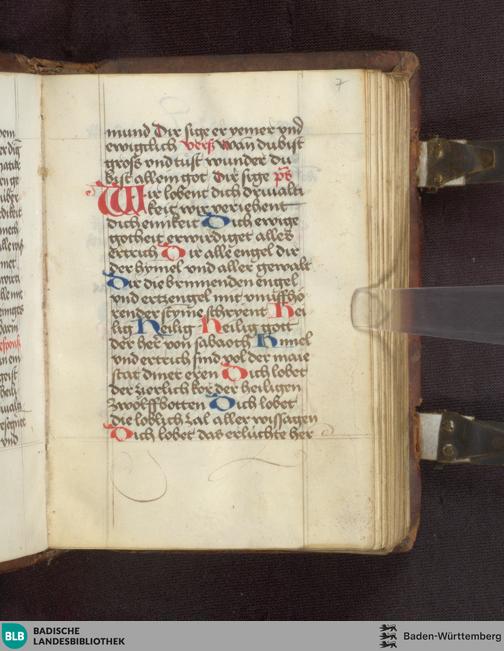 7
mund Dir sige er yemer vnd
ewiglich verß wan du bist
groß vnd tust wunder du
bist allein got Dir sige ps
Wir lobent dich driualti
keit wir veriehent
dich einikeit Dich ewige
gotheit erwirdiget alles
ertrich Dir alle engel dir
der hymel vnd aller gewalt
Dir die brinnenden engel
vnd ertzengel mit vnuffhö
render styme schryent Hei
lig Heilig Heilig gott
der her von sabaoth Himel
vnd ertrich sind vol der maie
stat diner eren Dich lobet
der zierlich kor der heiligen
zwölffbotten Dich lobet
die loblich zal aller wissagen
Dich lobet das erlúchte her
BLB
BADISCHE
LANDESBIBLIOTHEK
Baden-Württemberg